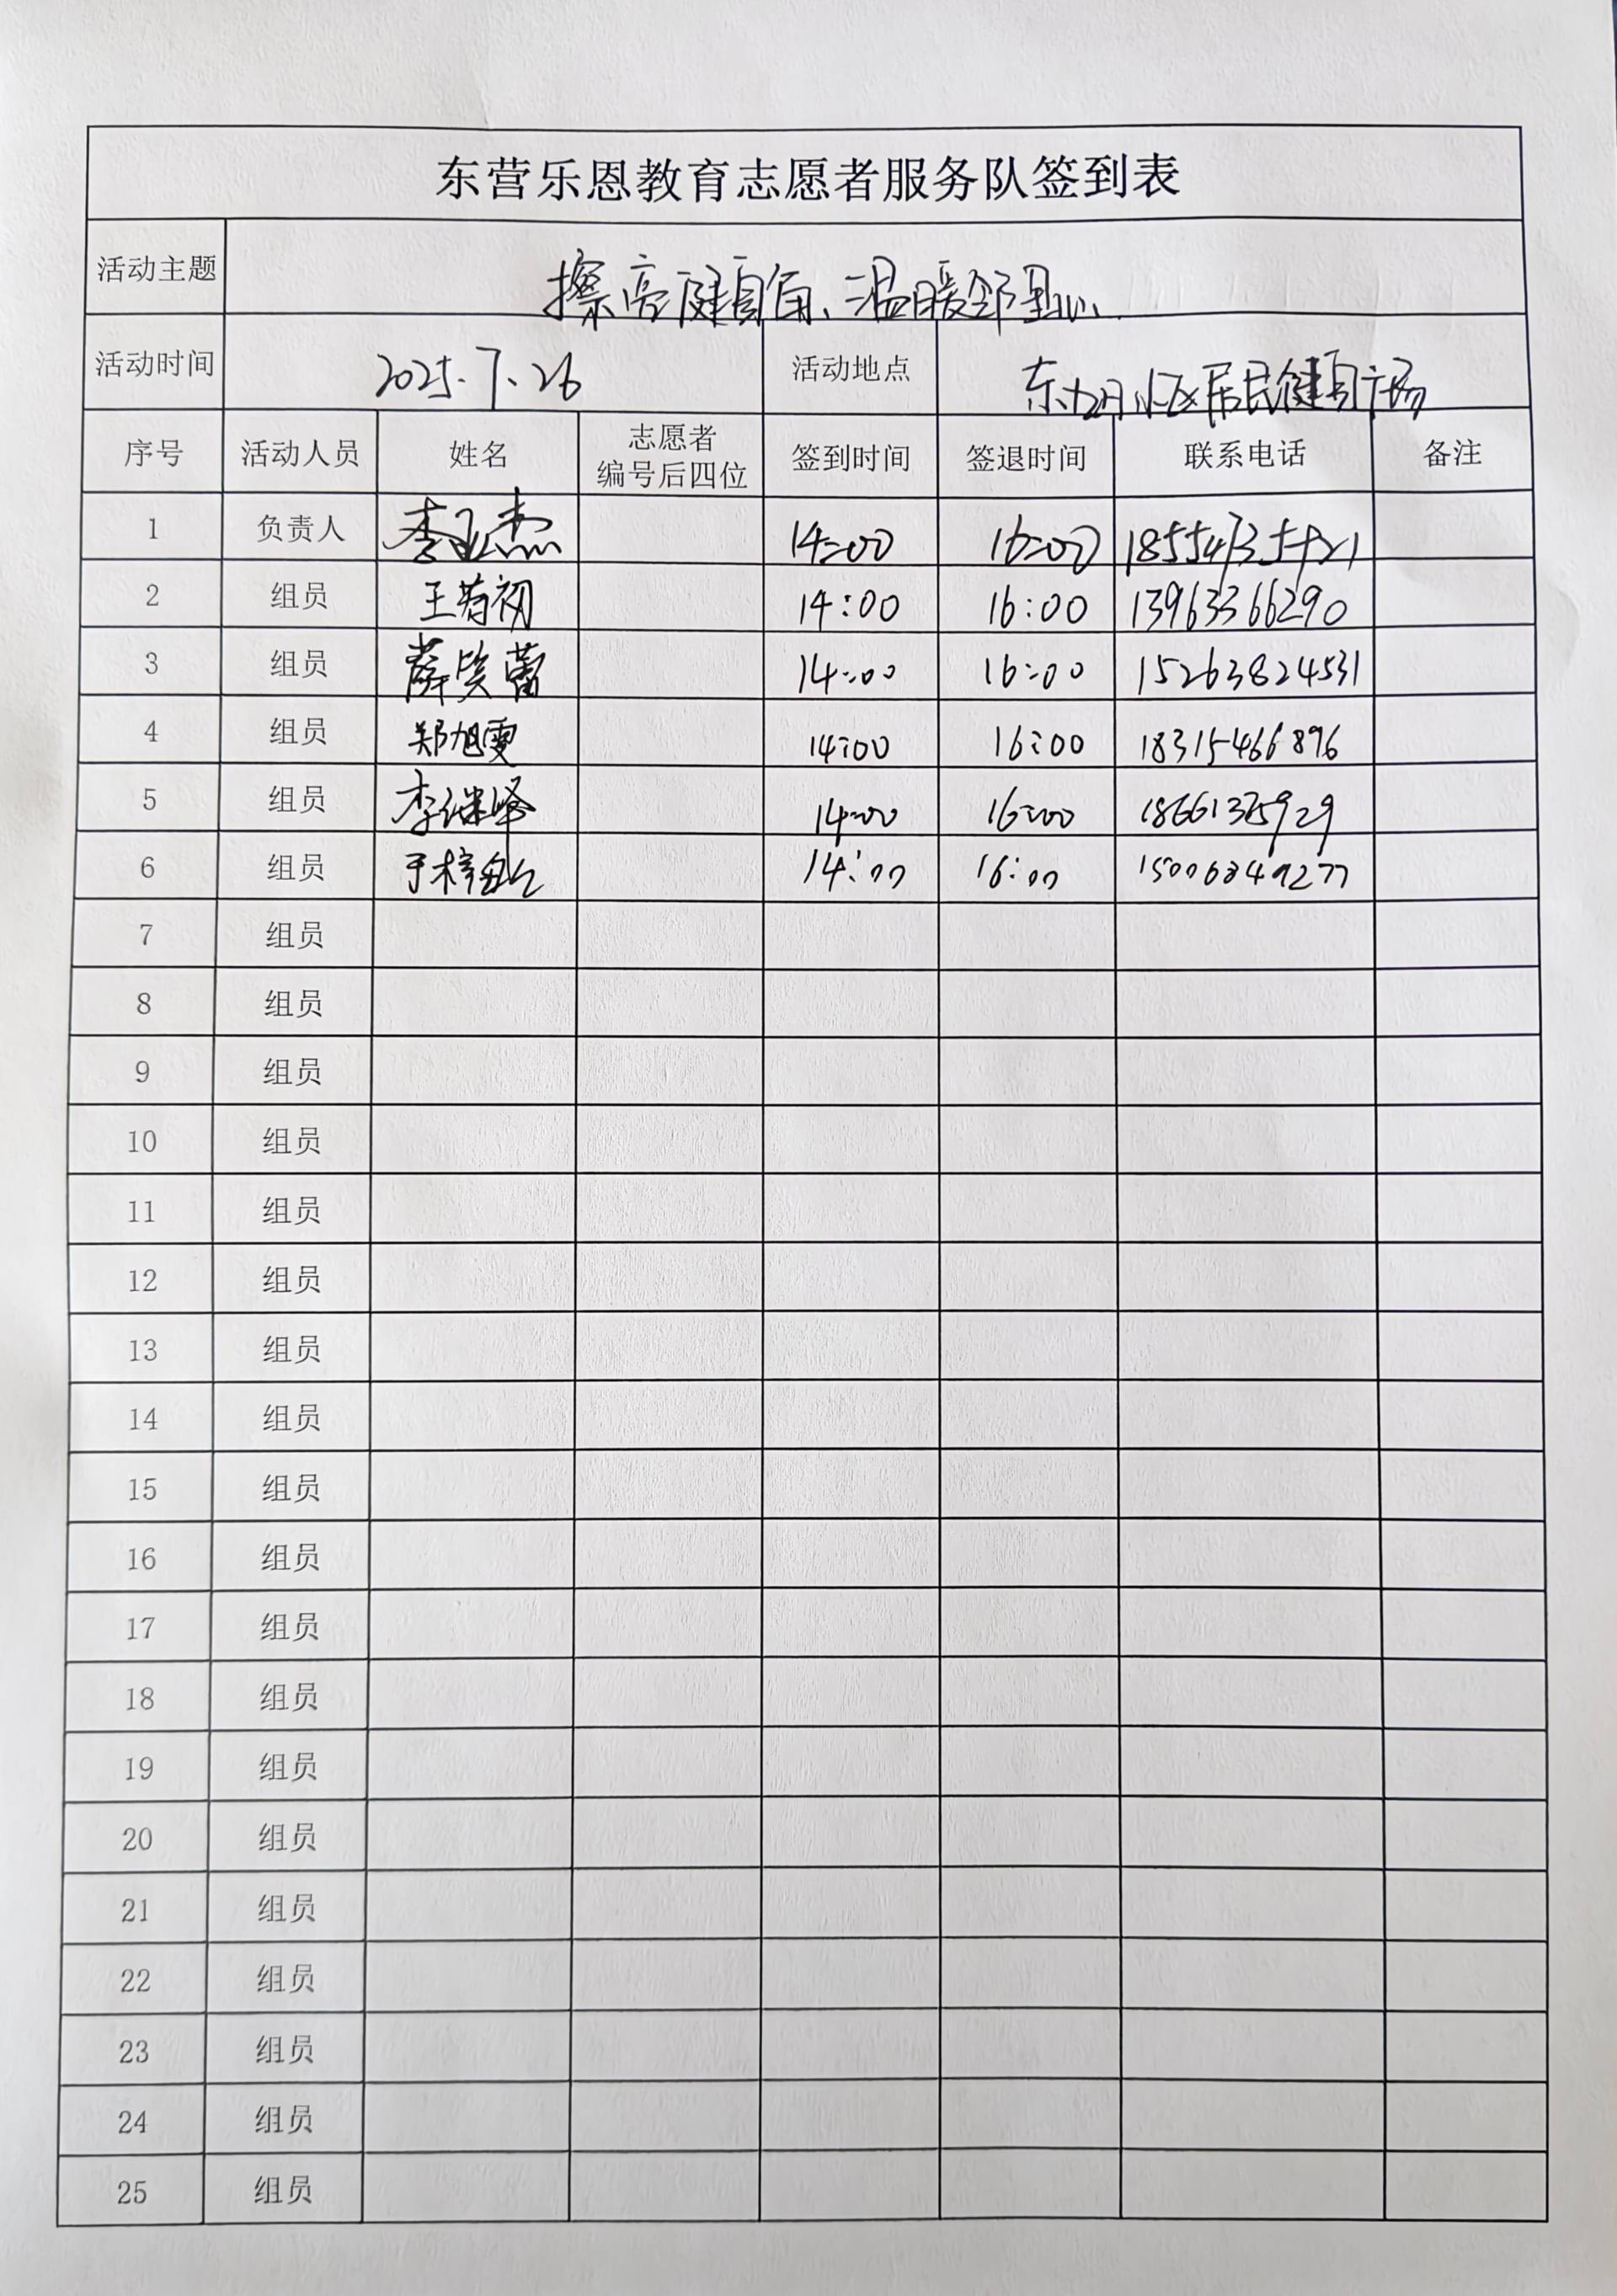 东营乐恩教育志愿者服务队签到表
活动主题 擦亮健身角、温暖邻里心
活动时间 2025.7.26 活动地点 东 小区居民健身广场
序号 活动人员 姓名 志愿者编号后四位 签到时间 签退时间 联系电话 备注
1 负责人 李亚杰 14:00 16:00
2 组员 王若初 14:00 16:00 13963366290
3 组员 薛笑蕾 14:00 16:00 15263824531
4 组员 郑旭雯 14:00 16:00 18315466896
5 组员 李继峄 14:00 16:00 18661375929
6 组员 于梓 14:00 16:00 15006849277
7 组员
8 组员
9 组员
10 组员
11 组员
12 组员
13 组员
14 组员
15 组员
16 组员
17 组员
18 组员
19 组员
20 组员
21 组员
22 组员
23 组员
24 组员
25 组员